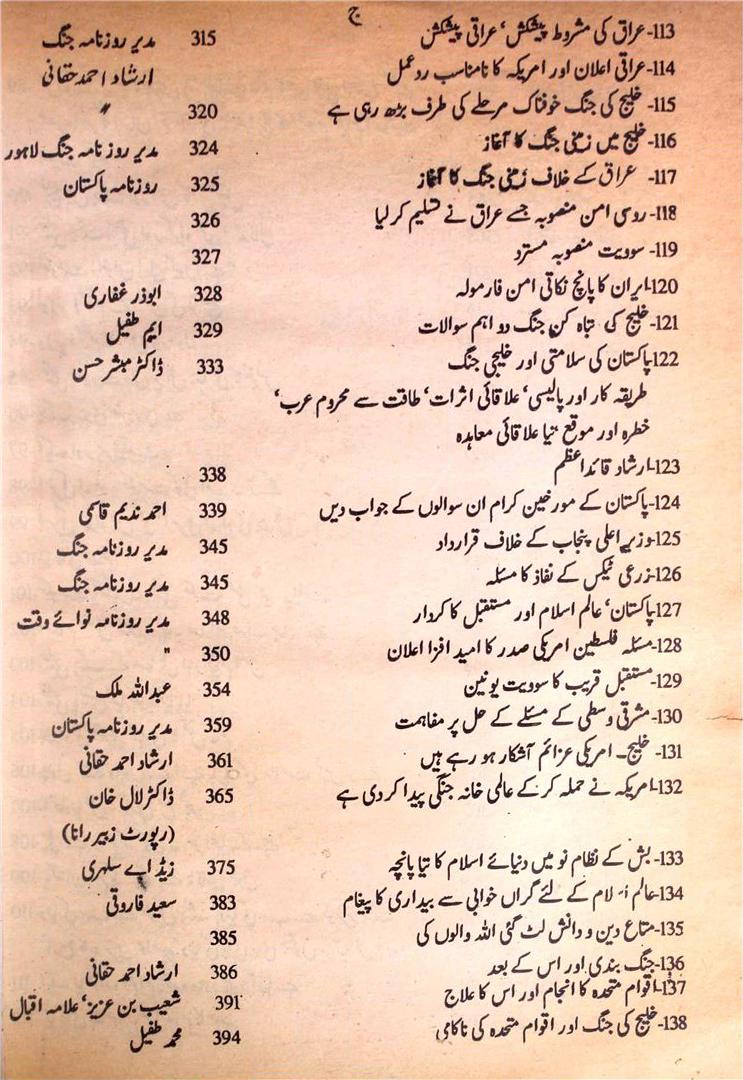 ج
113-عراق کی مشروط پیشکش‘ عراقی پیشکش 315 مدیر روزنامہ جنگ
114-عراقی اعلان اور امریکہ کا نامناسب ردعمل ارشاد احمد حقانی
115-خلیج کی جنگ خوفناک مرحلے کی طرف بڑھ رہی ہے 320 "
116-خلیج میں زمینی جنگ کا آغاز 324 مدیر روزنامہ جنگ لاہور
117- عراق کے خلاف زمینی جنگ کا آغاز 325 روزنامہ پاکستان
118-روسی امن منصوبہ جسے عراق نے تسلیم کرلیا 326
119-سوویت منصوبہ مسترد 327
120-ایران کا پانچ نکاتی امن فارمولہ 328 ابوذر غفاری
121-خلیج کی تباہ کن جنگ دو اہم سوالات 329 ایم طفیل
122-پاکستان کی سلامتی اور خلیجی جنگ 333 ڈاکٹر مبشر حسن
طریقہ کار اور پالیسی‘ علاقائی اثرات‘ طاقت سے محروم عرب‘
خطرہ اور موقع‘ نیا علاقائی معاہدہ
123-ارشاد قائداعظم 338
124-پاکستان کے مورخین کرام ان سوالوں کے جواب دیں 339 احمد ندیم قاسمی
125-وزیراعلی پنجاب کے خلاف قرارداد 345 مدیر روزنامہ جنگ
126-زرعی ٹیکس کے نفاذ کا مسئلہ 345 مدیر روزنامہ جنگ
127-پاکستان‘ عالم اسلام اور مستقبل کا کردار 348 مدیر روزنامہ نوائے وقت
128-مسئلہ فلسطین امریکی صدر کا امید افزا اعلان 350 "
129-مستقبل قریب کا سوویت یونین 354 عبداللہ ملک
130-مشرق وسطی کے مسئلے کے حل پر مفاہمت 359 مدیر روزنامہ پاکستان
131- خلیج۔ امریکی عزائم آشکار ہو رہے ہیں 361 ارشاد احمد حقانی
132-امریکہ نے حملہ کرکے عالمی خانہ جنگی پیدا کردی ہے 365 ڈاکٹر لال خان
(رپورٹ زبیر رانا)
133-بش کے نظام نو میں دنیائے اسلام کا تیا پانچہ 375 زیڈ اے سلہری
134-عالم اسلام کے لئے گراں خوابی سے بیداری کا پیغام 383 سعید فاروقی
135-متاع دین و دانش لٹ گئی اللہ والوں کی 385
136-جنگ بندی اور اس کے بعد 386 ارشاد احمد حقانی
137-اقوام متحدہ کا انجام اور اس کا علاج 391 شعیب بن عزیز‘ علامہ اقبال
138-خلیج کی جنگ اور اقوام متحدہ کی ناکامی 394 محمد طفیل